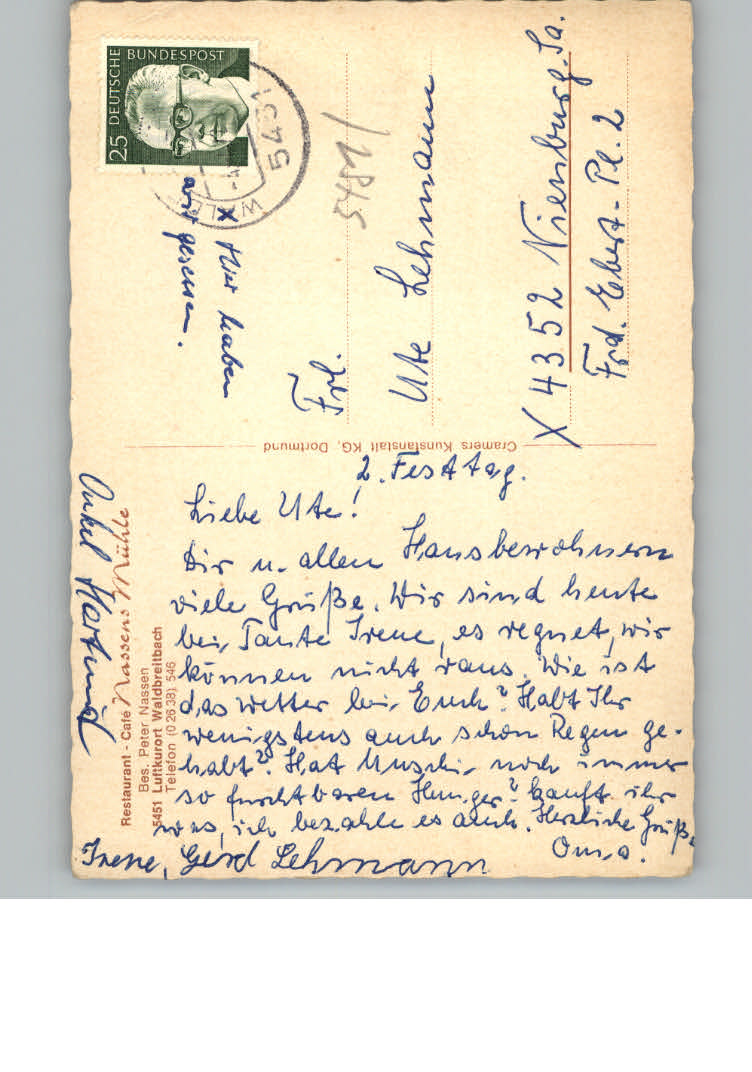 Restaurant - Café Nassens Mühle
Bes. Peter Nassen
5451 Luftkurort Waldbreitbach
Telefon (0 26 38) 546
2. Festtag.
Liebe Ute!
Dir u. allen Hausbewohnern
viele Grüße. Wir sind heute
bei Tante Irene, es regnet, wir
können nicht raus. Wie ist
das Wetter bei Euch? Habt Ihr
wenigstens auch schon Regen ge-
habt? Hat Muschi noch immer
so furchtbaren Hunger? Kauft ihr
was, ich bezahle es auch. Herzliche Grüße
Oma.
Irene, Gerd Lehmann
Onkel Hartmut
Cramers Kunstanstalt KG, Dortmund
X Hier haben
wir gesessen.
25 DEUTSCHE BUNDESPOST
5451
5451
Frl.
Ute Lehmann
X 4352 Nienburg. Sa.
Frd. Ebert-Pl. 2